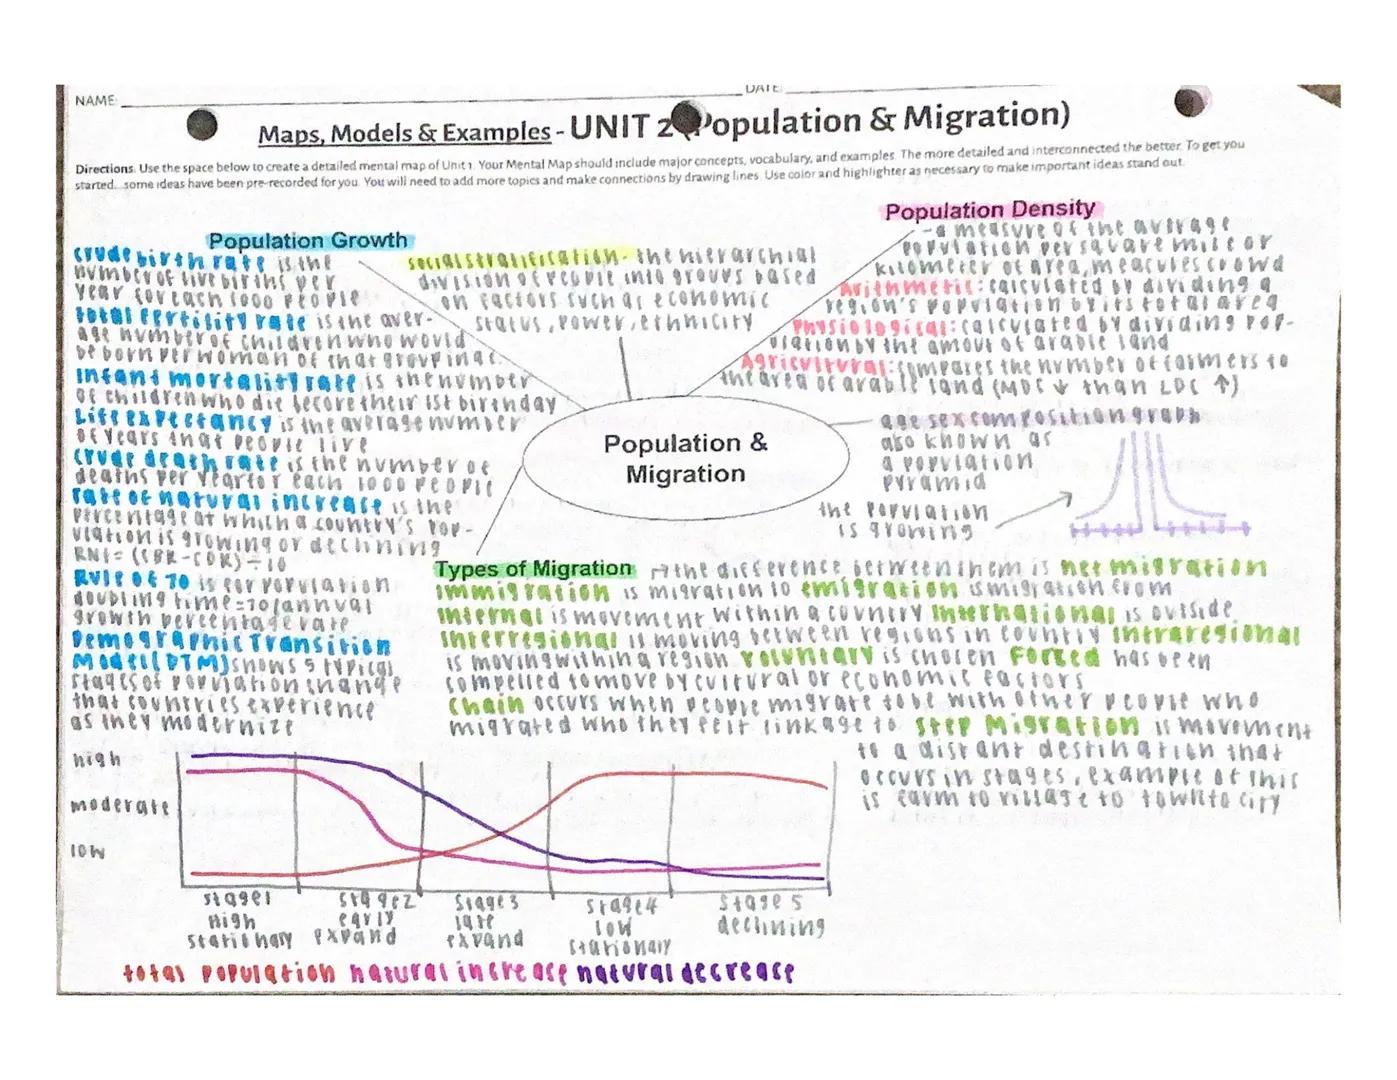 NAME: DATE:
Maps, Models & Examples - UNIT 2 (Population & Migration)
Directions. Use the space below to create a detailed mental map of Unit 1. Your Mental Map should include major concepts, vocabulary, and examples. The more detailed and interconnected the better. To get you
started...some ideas have been pre-recorded for you. You will need to add more topics and make connections by drawing lines. Use color and highlighter as necessary to make important ideas stand out.
Population Growth
crude birth rate is the
number of live births per
year for each 1000 people
total fertility rate is the aver-
age number of children who would
be born per woman of that group in at.
infant mortality rate is the number
of children who die before their 1st birthday
Life expectancy is the average number
of years that people live
crude death rate is the number of
deaths per year for each 1000 people
rate of natural increase is the
percentage at which a country's pop-
ulation is growing or declining
RNI = (CBR - CDR) ÷ 10
Rule of 70 is for population
doubling time = 70/annual
growth percentage rate
Demographic Transition
Model (DTM) shows 5 typical
stages of population change
that countries experience
as they modernize
social stratification - the hierarchial
division of people into groups based
on factors such as economic
status, power, ethnicity
Population Density
-a measure of the average
population per square mile or
kilometer of area, measures crowd
Arithmetic: calculated by dividing a
region's population by its total area
Physiological: calculated by dividing pop-
ulation by the amout of arable land
Agricultural: compares the number of farmers to
the area of arable land (MDC ↓ than LDC ↑)
Population &
Migration
age sex composition graph
also known as
a population
pyramid
the population
is growing
Types of Migration ↦ the difference between them is net migration
immigration is migration to emigration is migration from
internal is movement within a country international is outside
interregional is moving between regions in country intraregional
is moving within a region voluntary is chosen Forced has been
compelled to move by cultural or economic factors
Chain occurs when people migrate to be with other people who
migrated who they felt linkage to. Step Migration is movement
to a distant destination that
occurs in stages, example of this
is farm to village to town to city
high
moderate
low
stage1 stage2 stage3 stage4 stage 5
high early late low declining
stationary expand expand stationary
total population natural increase natural decrease